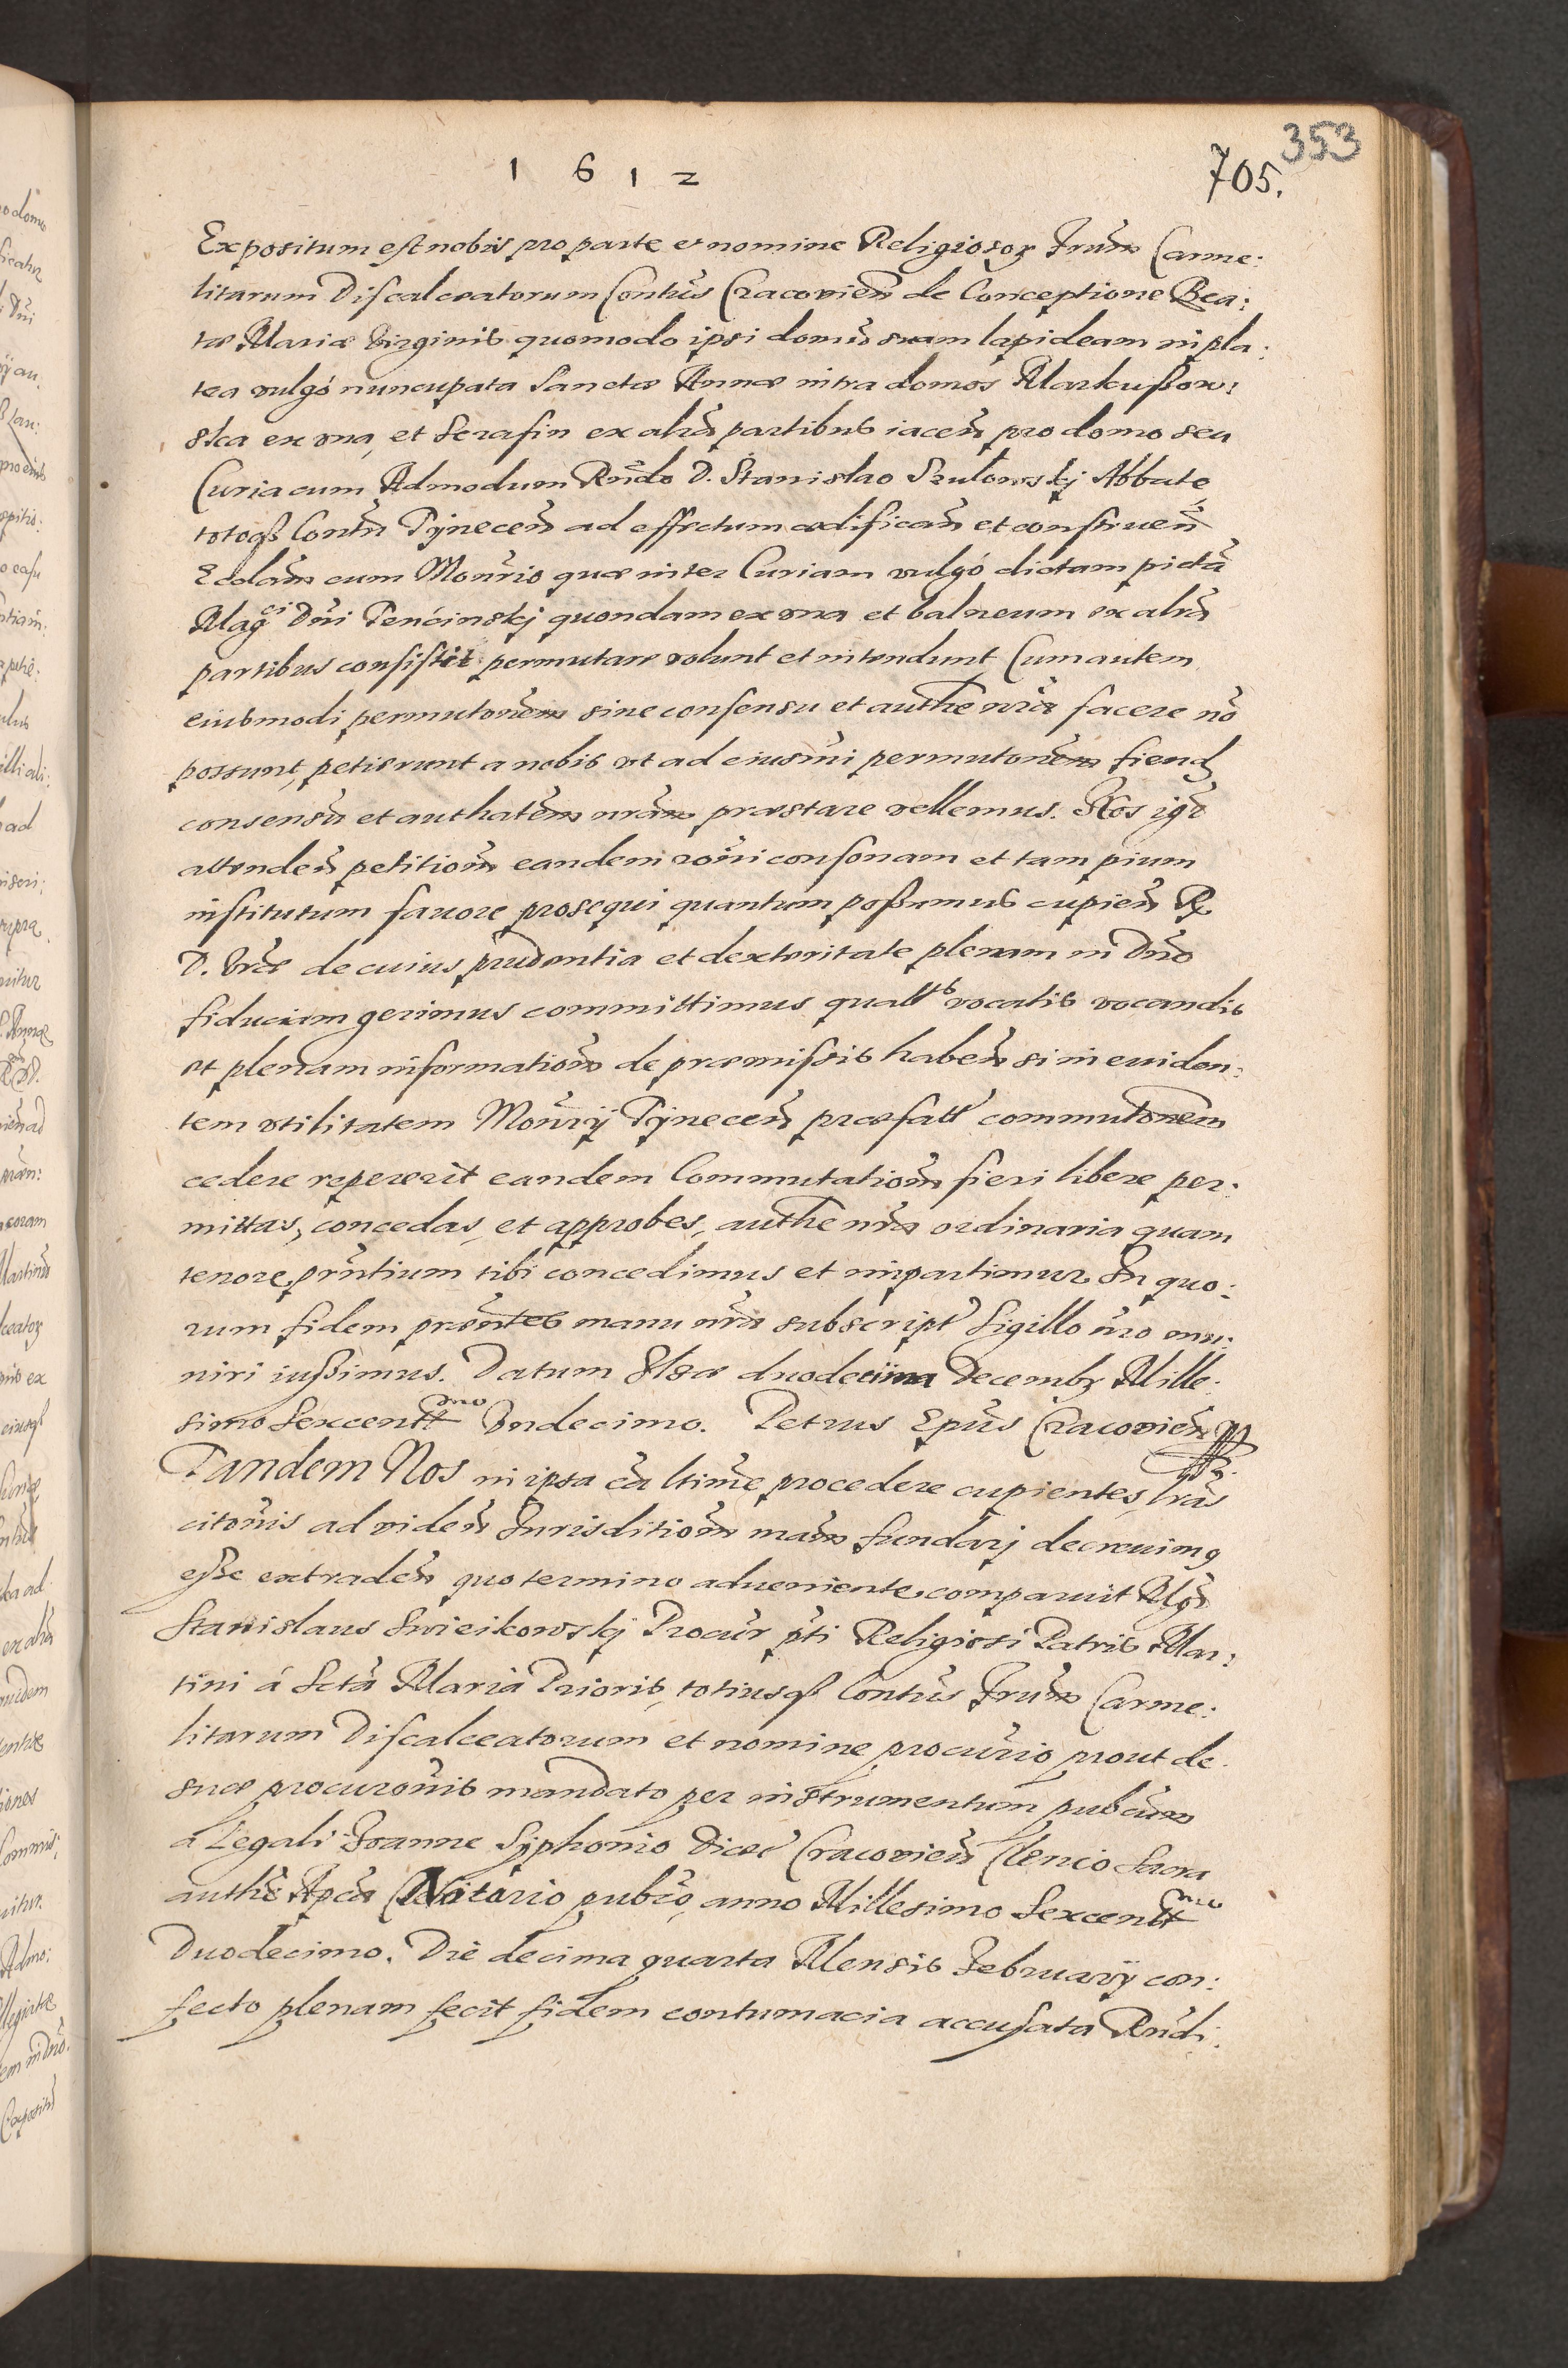 353
1 6 1 2
705.
Expositum est nobis pro parte et nomine Religiosoꝝ Frum̃ Carme:
litarum Discalceatorum Contũs Cracovieñ de Conceptione Bea:
tæ Mariæ Virginis quomodo ipsi domũ suam lapideam in pla:
tea vulgó nuncupata Sanctæ Annæ intra domos Markußow:
ska ex vna, et Serafin ex aliã partibus iaceñ pro domo seu
Curia cum Admodum Rñdo D. Stanislao Szulowskj Abbate
totoqꝫ Contũ Tÿneceñ ad effectum ædificañ et construeñ
Ecclãm cum Monr̃io quæ inter Curiam vulgó dictam pictã
Magci Dñi Tenćinskj quondam ex vna et balneum ex aliã
partibus consistit permutare volunt et intendunt Cum autem
eiusmodi permutonẽm sine consensu et authe nr̃a facere nõ
possunt, petierunt a nobis vt ad eiusm̃i permutonẽm fiend
consensũ et authatẽm nrãm præstare vellemus. Nos igr̃
attendeñ petitioñm eandem roñi consonam et tam pium
institutum fauore prosequi quantum poßumus cupieñ R
D. Vræ de cuius prudentia et dexteritate plenam in Dño
fiduciam gerimus committimus quatts vocatis vocandis
et plenam informationẽ de præmissis habeñ si in euiden:
tem vtilitatem Monr̃ij Tÿneceñ præfatt commutonẽm
cedere repererit eandem Commutationẽm fieri libere per:
mittas, concedas, et approbes, authe nr̃a ordinaria quam
tenore prñtium tibi concedimus et impartimur. In quo:
rum fidem præntes manu nr̃a subscript Sigillo nr̃o mu:
niri iußimus. Datum Ilzæ duodecima Decembꝝ Mille:
simo Sexcentt mo Vndecimo. Petrus Epũs Cracovieñ
Tandem Nos in ipsa cã ltime procedere cupientes, lrãs
citoñis ad videñ Jurisditioñm nrãm fundarj decreuimꝯ
eße extradeñ quo termino adueniente comparuit Mgr̃
Stanislaus Swieikowskj Procur̃ p̃ti Religiosi Patris Mar:
tini á Sctã Maria Prioris, totiusqꝫ Contũs Frum̃ Carme:
litarum Discalceatorum et nomine procur̃io prout de
suæ procuroñis mandato per instrumentum pubcũm
a Legali Joanne Syphonio Diœc̃ Cracovieñ Clerico Sacra
authe Apcã Notario pubco, anno Millesimo Sexcentt mo
Duodecimo. Die decima quarta Mensis Februarÿ con:
fecto plenam fecit fidem contumacia accusata Rñdi: